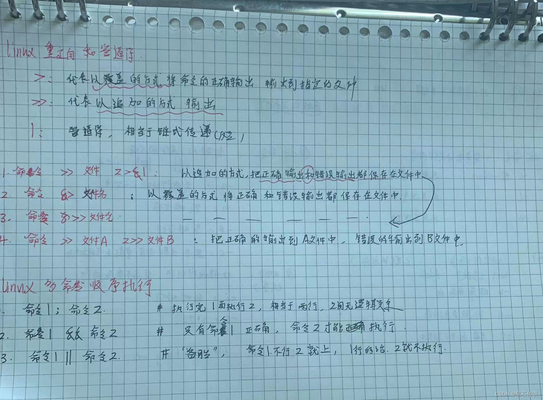 Linux 重定向和管道符
>: 代表以覆盖的方式 将命令的正确输出 输出到指定的文件
>>: 代表以追加的方式 输出
|: 管道符, 相当于链式传递
1. 命令 >> 文件 2>&1: 以追加的方式, 把正确输出和错误输出都保存在文件中
2. 命令 &> 文件名: 以覆盖的方式 将正确和错误输出都保存在文件中.
3. 命令 &>> 文件名: — — — — — —
4. 命令 >> 文件A 2>> 文件B: 把正确的输出到A文件中, 错误的输出到B文件中
Linux 多命令顺序执行
1. 命令1; 命令2. # 执行完1再执行2, 相当于两行, 之间无逻辑关系
2. 命令1 && 命令2 # 只有命令1正确, 命令2才能执行.
3. 命令1 || 命令2. # 命令1不行2就上, 1行的话. 2就不执行.